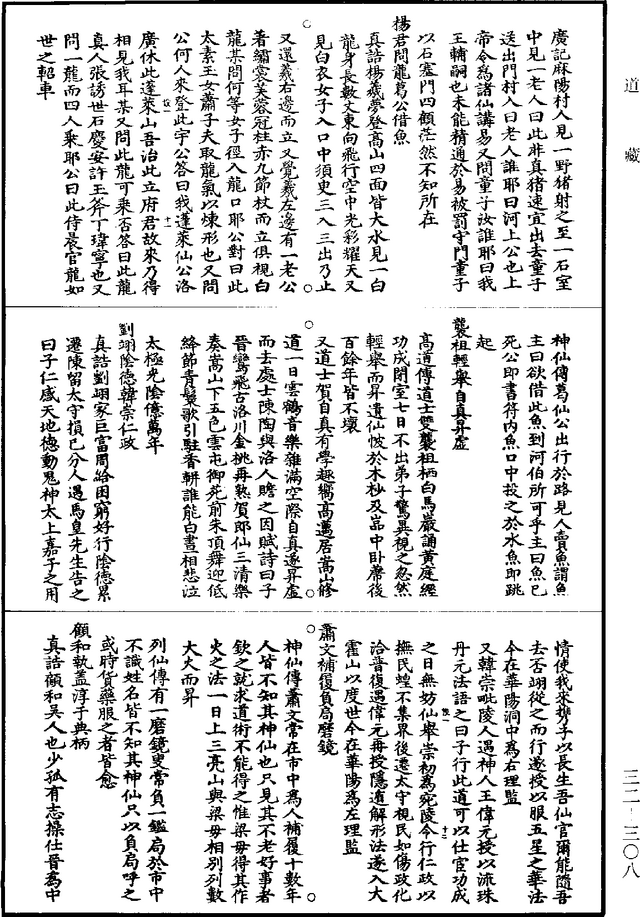 道藏
廣記麻陽村人見一野猪射之至一石室
中見一老人曰此非真猪速宜出去童子
送出門村人曰老人誰耶曰河上公也上
帝令爲諸仙講易又問童子汝誰耶曰我
王輔嗣也未能精通於易被罰守門童子
以石塞門四顧茫然不知所在
楊君問龍葛公借魚
真誥楊羲夢登高山四面皆大水見一白
龍身長數丈東向飛行空中光彩耀天又
見白衣女子入口中須臾三入三出乃止
又還羲右邊而立又覺羲左邊有一老公
著繡裳芙蓉冠柱赤九節杖而立俱視白
龍某問何等女子徑入龍口耶公對曰此
太素玉女蕭子夫取龍氣以煉形也又問
公何人來登此宇公答曰我蓬萊仙公洛
廣休此蓬萊山吾治此立府君故來乃得
相見我耳某又問此龍可乘否答曰此龍
真人張誘世石慶安許玉斧丁瑋寧也又
問一龍而四人乘耶公曰此侍晨官龍如
世之軺車
神仙傳葛仙公出行於路見人賣魚謂魚
主曰欲借此魚到河伯所可乎主曰魚已
死公即書符内魚口中投之於水魚即跳
起
襲祖輕舉自真昇虛
高道傳道士雙襲祖栖白馬巖誦黄庭經
功成閉室七日不出弟子驚異視之忽然
輕舉而昇遺仙帔於木杪及嵓中卧席後
百餘年皆不壞
又道士賀自真有學趣嚮高邁居嵩山修
道一日雲鶴音樂雜滿空際自真遂昇虛
而去處士陳陶與洛人贍之因賦詩曰子
晉鸞飛古洛川金桃再熟賀郎仙三清樂
奏嵩山下五色雲屯御苑前朱頂舞迎低
絳節青鬟歌引駐香軿誰能白晝相悲泣
太極光陰億萬年
劉翊陰德韓崇仁政
真誥劉翊家巨富周給困窮好行陰德累
遷陳留太守損己分人遇馬皇先生告之
曰子仁感天地德動鬼神太上嘉子之用
情使我來擕子以長生吾仙官爾能隨吾
去否翊從之而行遂授以服五星之華法
今在華陽洞中爲右理監
又韓崇毗陵人遇神人王偉元授以流珠
丹元法語之曰子行此道可以仕官功成
之日無妨仙舉崇初爲宛陵令行仁政以
撫民蝗不集界後遷太守視民如傷政化
洽晉復遇偉元再授隱遁解形法遂入大
霍山以度世今在華陽爲左理監
蕭文補復負局磨鏡
神仙傳蕭文常在市中爲人補履十數年
人皆不知其神仙也只見其不老好事者
欽之就求道術不能得之惟梁毋得其作
火之法一日上三亮山與梁毋相別列數
大火而昇
列仙傳有一磨鏡叟常負一鑑局於市中
不識姓名皆不知其神仙只以負局呼之
或時貨藥服之者皆愈
顧和執盖淳于典柄
真誥顧和吳人也少孤有志操仕晉爲中
三二—三〇八